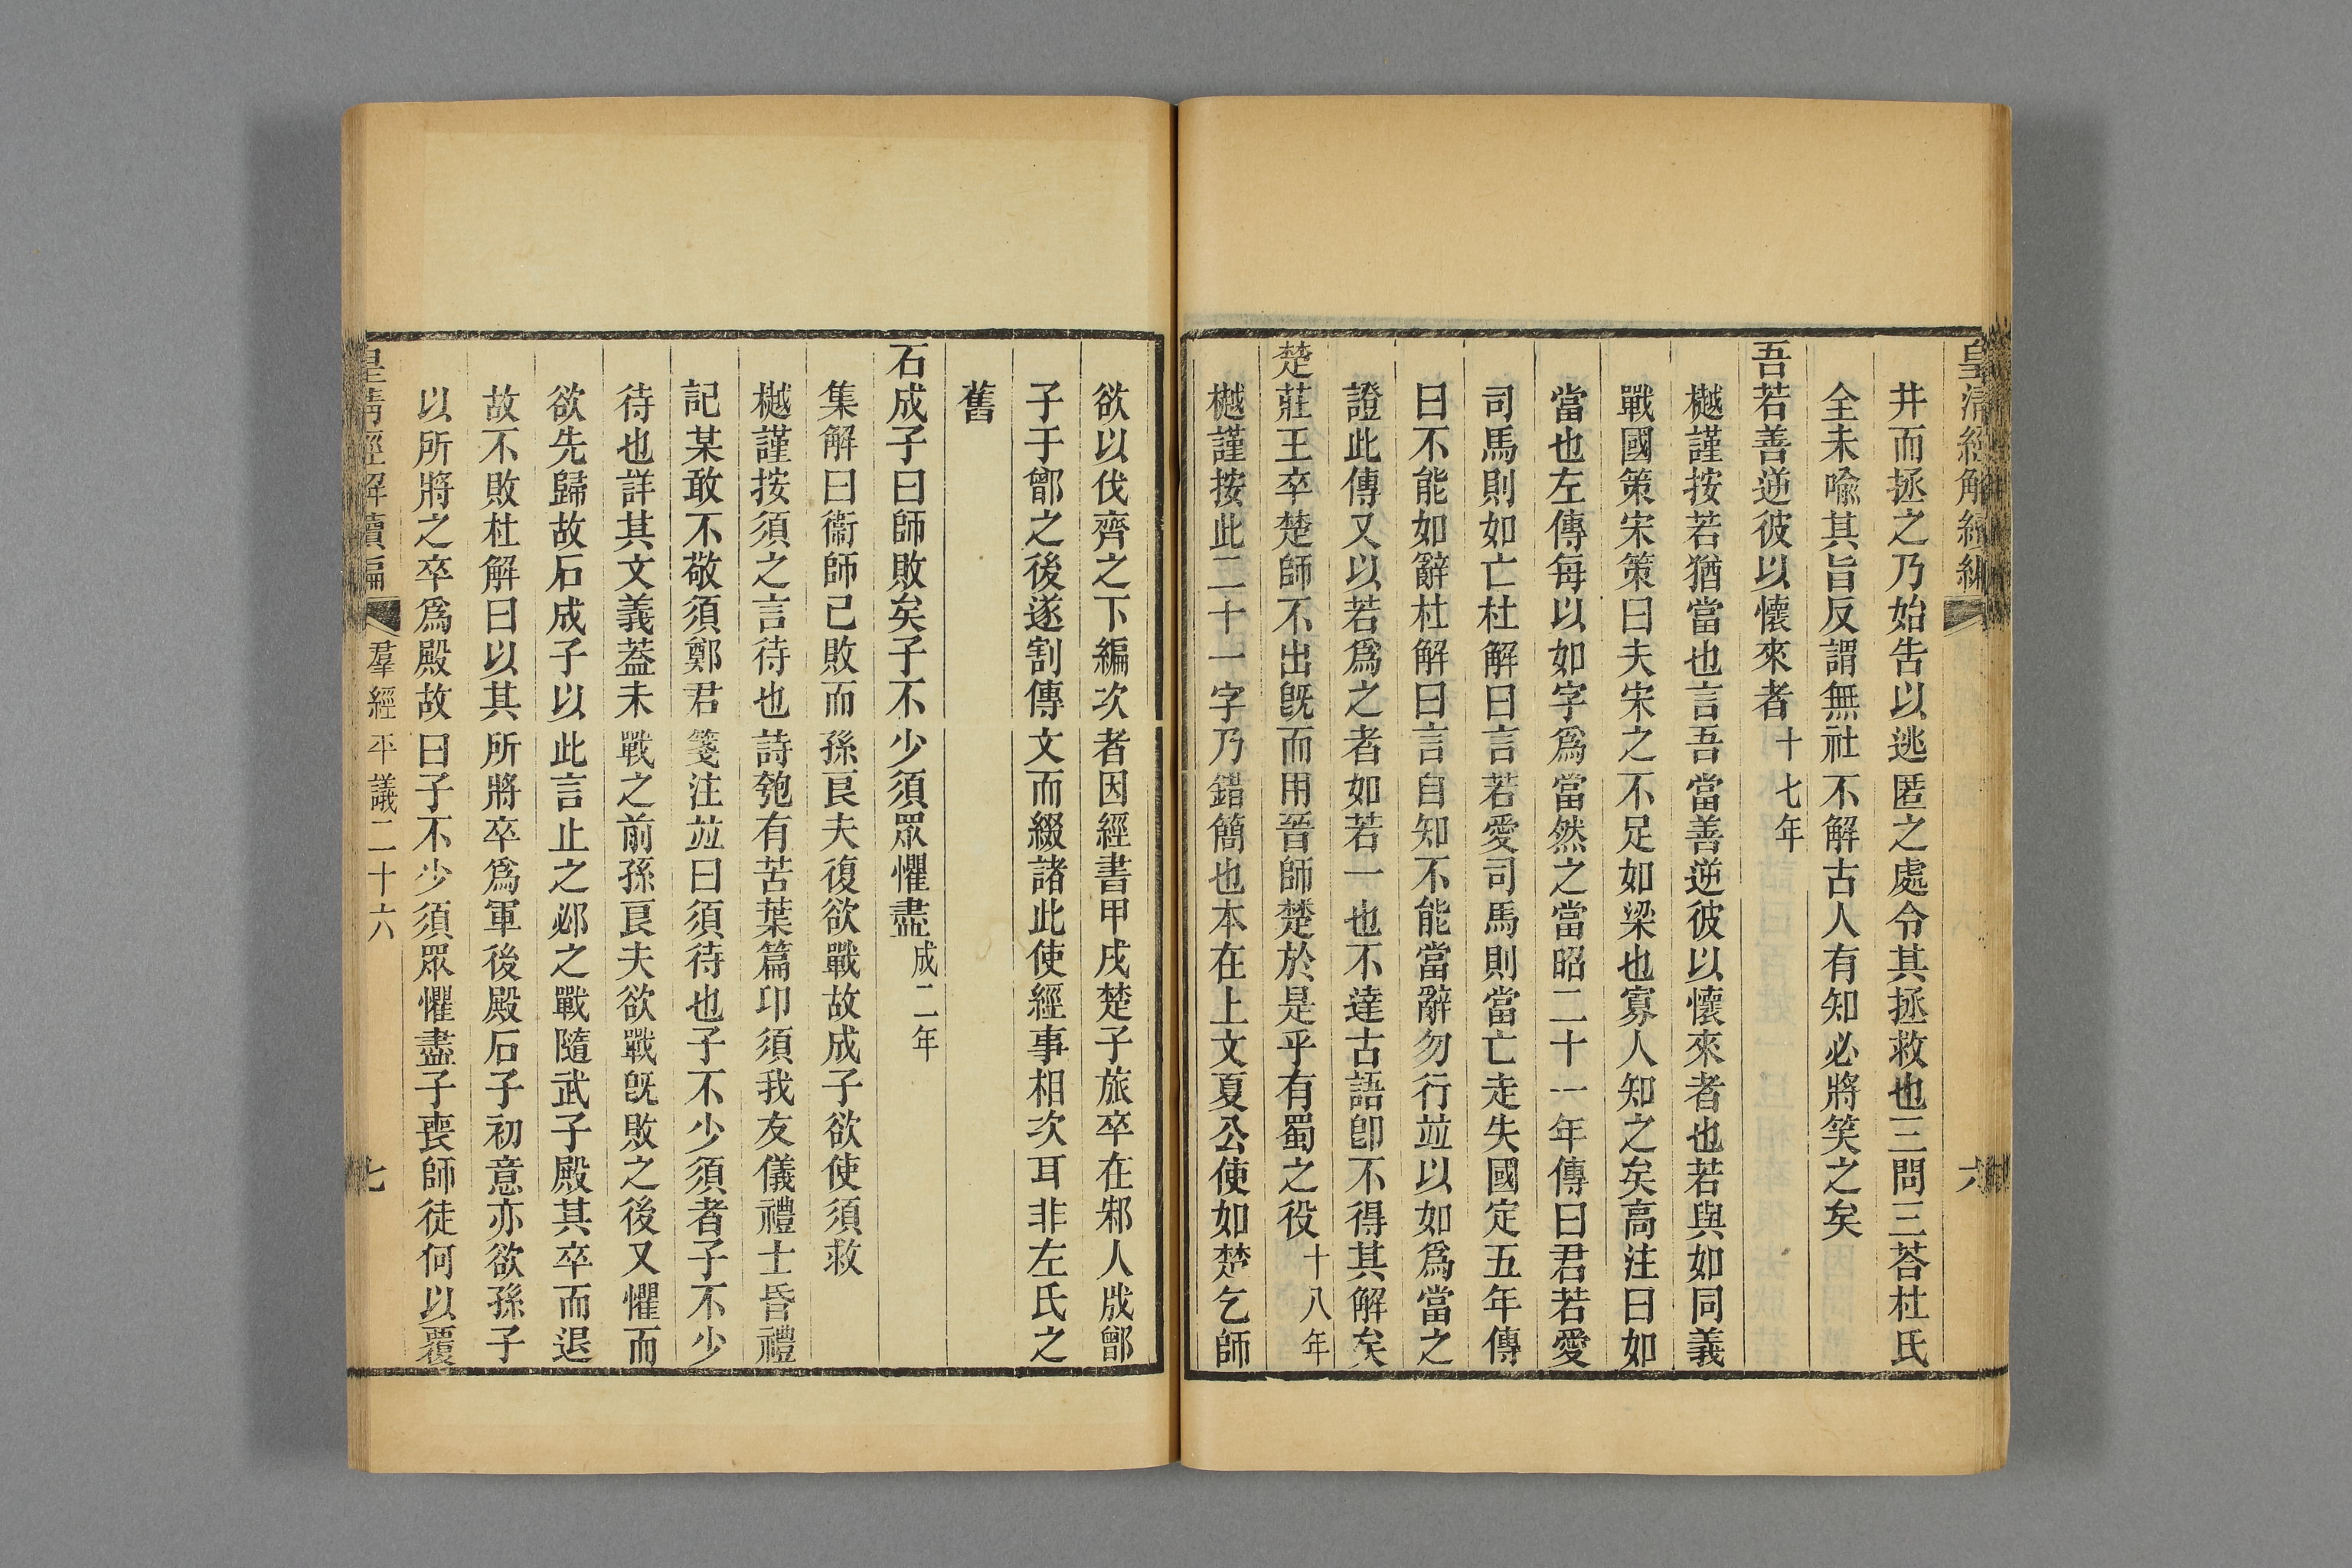 皇清經解續編 六
井而拯之乃始告以逃匿之處令其拯救也三問三荅杜氏
全未喻其旨反謂無社不解古人有知必將笑之矣
吾若善逆彼以懷來者十七年
樾謹按若猶當也言吾當善逆彼以懷來者也若與如同義
戰國策宋策曰夫宋之不足如梁也寡人知之矣高注曰如
當也左傳每以如字爲當然之當昭二十一年傳曰君若愛
司馬則如亡杜解曰言若愛司馬則當亡走失國定五年傳
曰不能如辭杜解曰言自知不能當辭勿行竝以如爲當之
證此傳又以若爲之者如若一也不達古語卽不得其解矣
楚莊王卒楚師不出旣而用晉師楚於是乎有蜀之役十八年
樾謹按此二十一字乃錯簡也本在上文夏公使如楚乞師
欲以伐齊之下編次者因經書甲戌楚子旅卒在邾人戕鄫
子于鄫之後遂割傳文而綴諸此使經事相次耳非左氏之
舊
石成子曰師敗矣子不少須眾懼盡成二年
集解曰衞師已敗而孫良夫復欲戰故成子欲使須救
樾謹按須之言待也詩匏有苦葉篇卬須我友儀禮士昏禮
記某敢不敬須鄭君箋注竝曰須待也子不少須者子不少
待也詳其文義葢未戰之前孫良夫欲戰旣敗之後又懼而
欲先歸故石成子以此言止之邲之戰隨武子殿其卒而退
故不敗杜解曰以其所將卒爲軍後殿石子初意亦欲孫子
以所將之卒爲殿故曰子不少須眾懼盡子喪師徒何以覆
皇清經解續編 羣經平議二十六 七